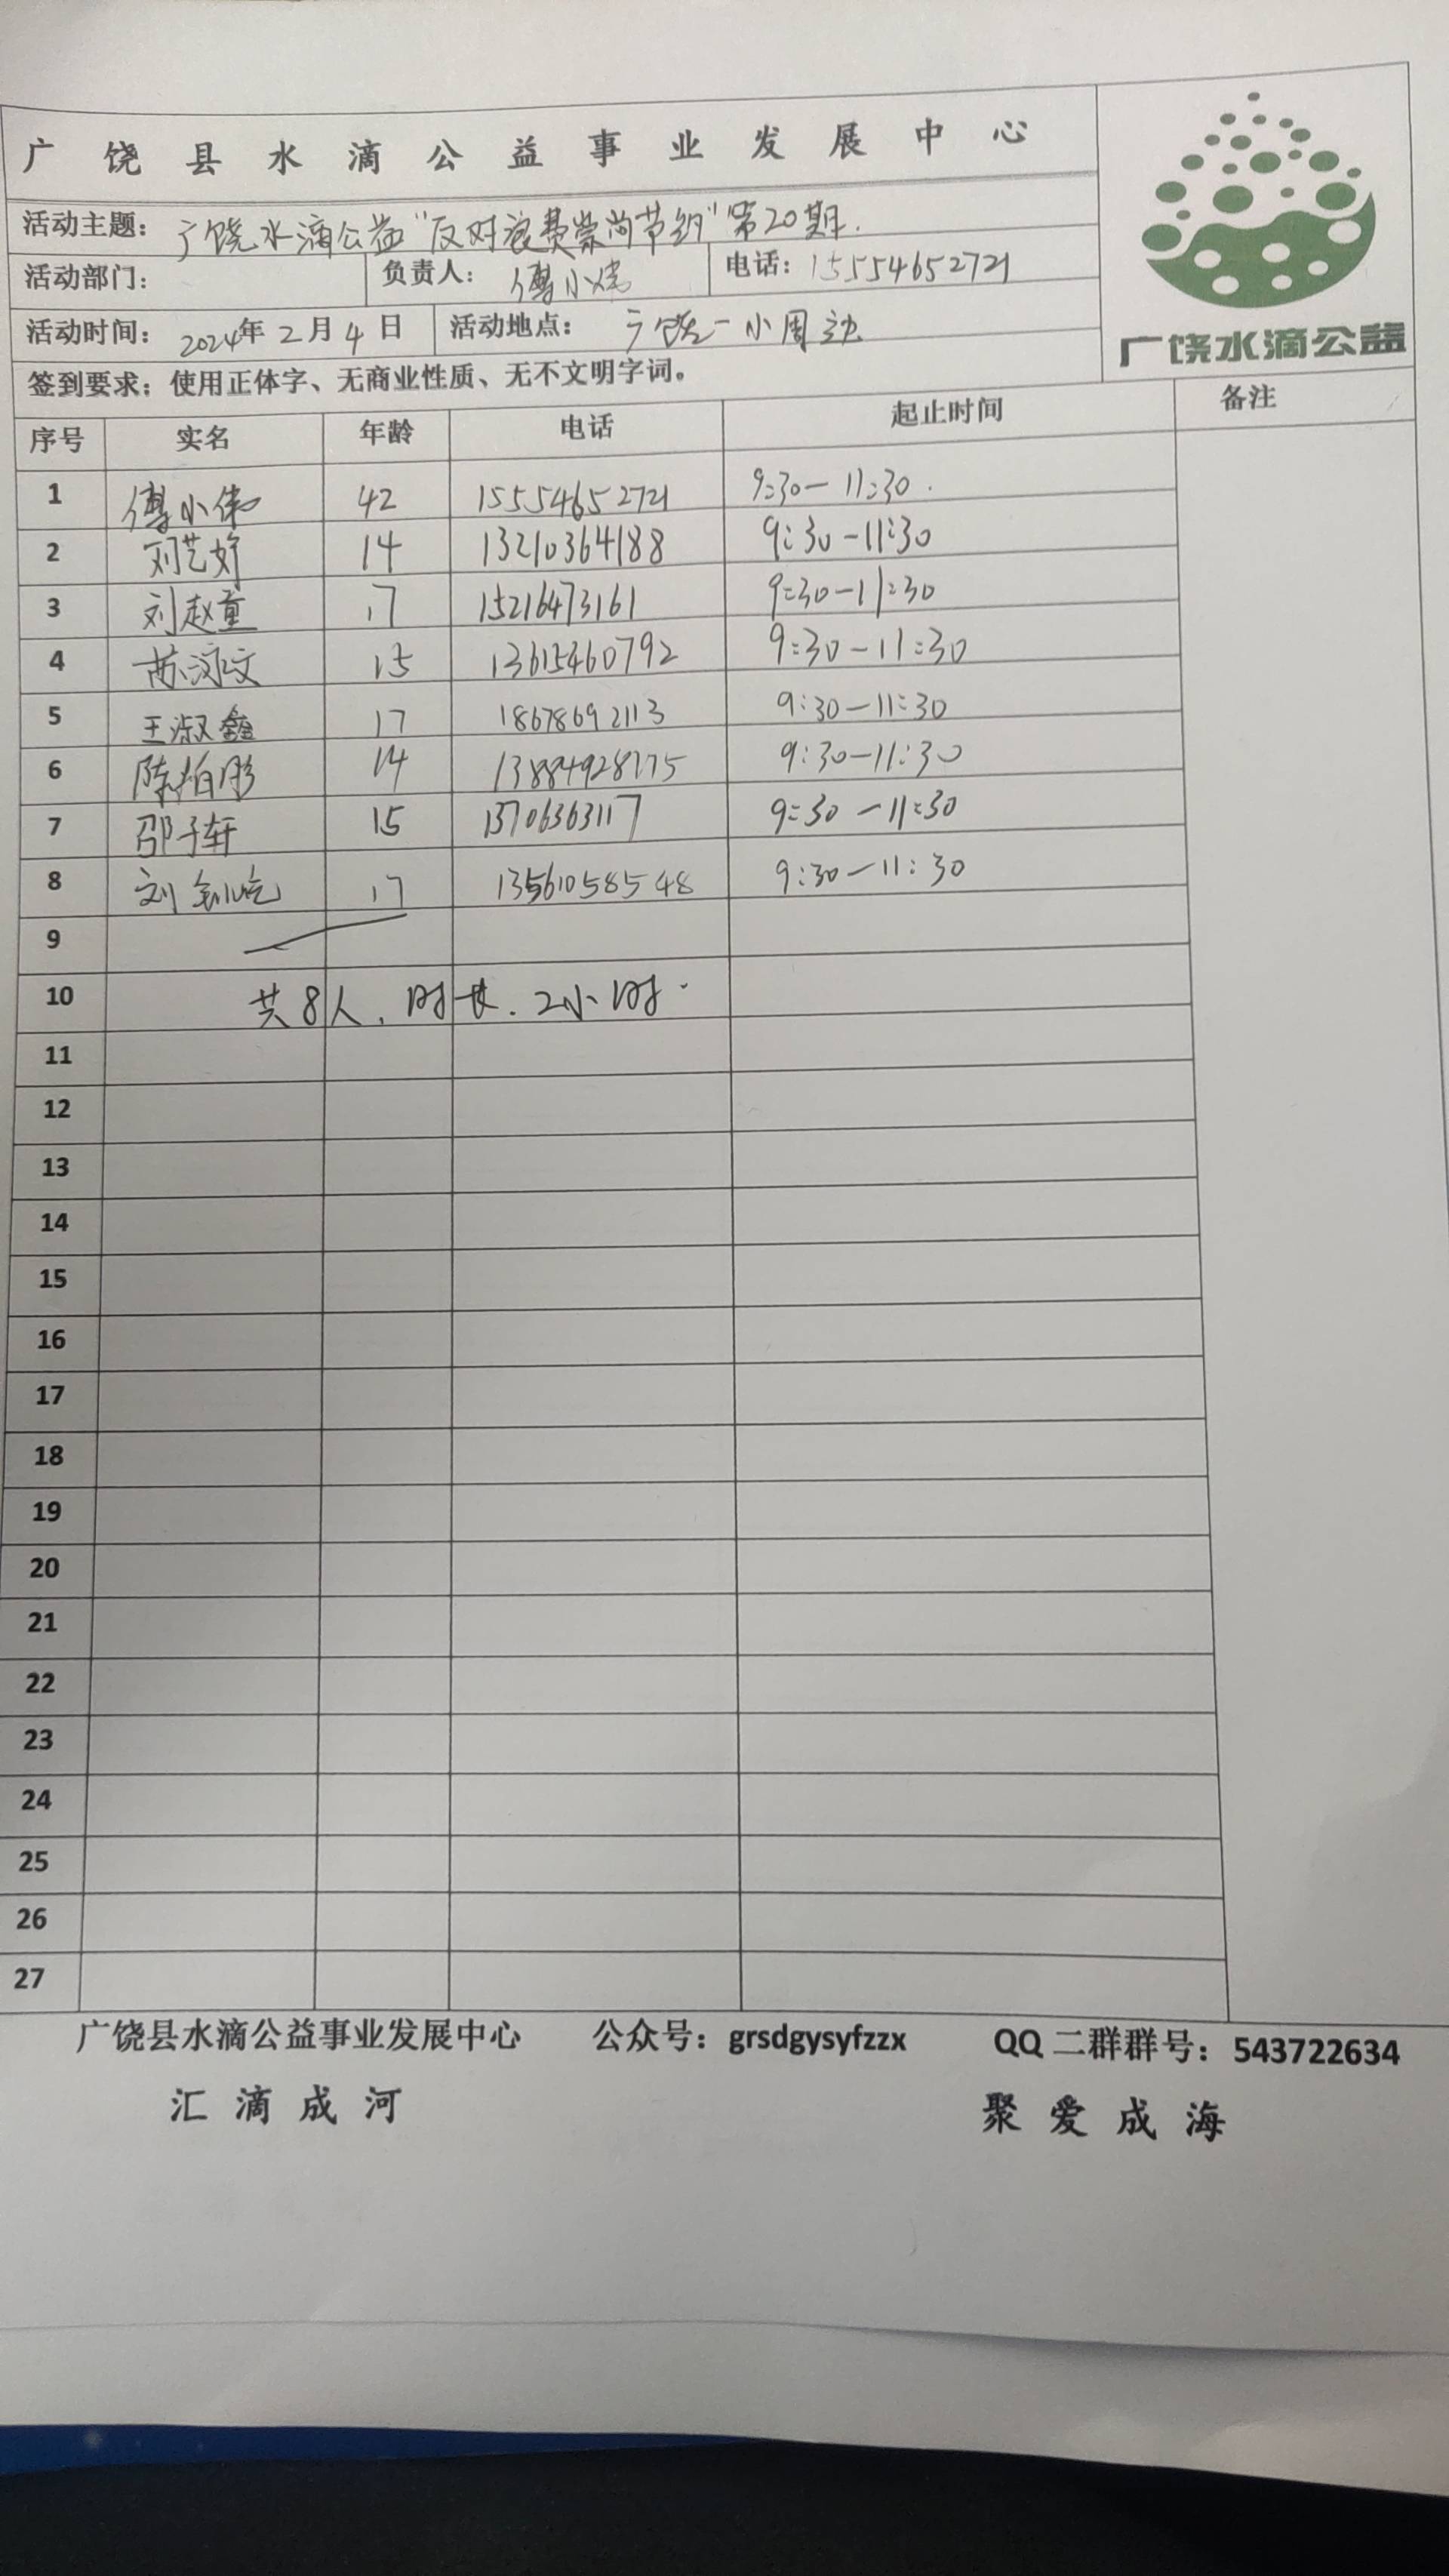 广饶县水滴公益事业发展中心
活动主题：广饶水滴公益"反对浪费崇尚节约"第20期.
活动部门： 负责人：傅小伟 电话：15554652721
活动时间：2024年2月4日 活动地点：广饶一小周边
广饶水滴公益
签到要求：使用正体字、无商业性质、无不文明字词。
序号 实名 年龄 电话 起止时间 备注
1 傅小伟 42 15554652721 9:30-11:30.
2 刘艺妤 14 13210364188 9:30-11:30
3 刘赵童 17 15216473161 9:30-11:30
4 苏泳文 15 13615460792 9:30-11:30
5 王淑鑫 17 18678692113 9:30-11:30
6 陈柏彤 14 13884928775 9:30-11:30
7 邵子轩 15 13706363117 9:30-11:30
8 刘 17 13561058548 9:30-11:30
9
10 共8人.时长.2小时.
11
12
13
14
15
16
17
18
19
20
21
22
23
24
25
26
27
广饶县水滴公益事业发展中心 公众号：grsdgysyfzzx QQ二群群号：543722634
汇滴成河 聚爱成海